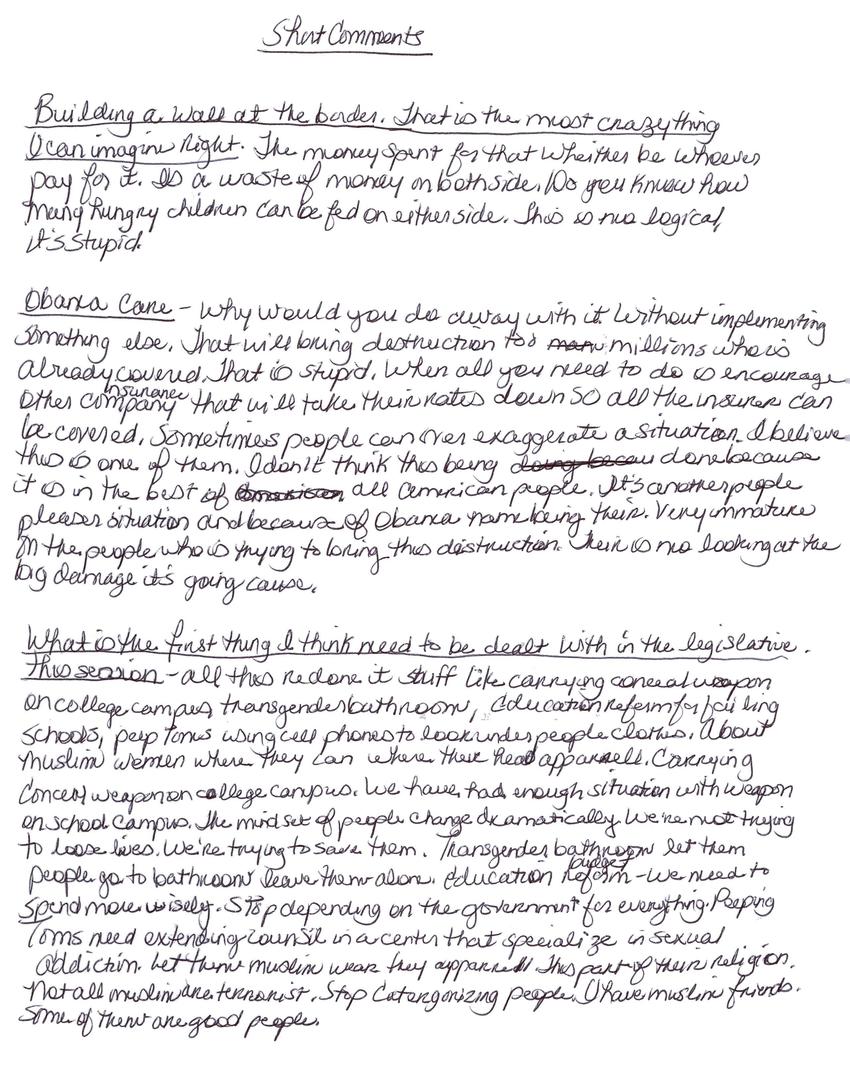 Short Comments
Building a wall at the border. That is the most crazy thing
I can imagine Right. The money spent for that whether be whoever
pay for it. Is a waste of money on both side. Do you know how
many hungry children can be fed on either side. This is no logical,
it's stupid.
Obama Care - Why would you do away with it. Without implementing
something else. That will bring destruction too millions who is
already covered. That is stupid. When all you need to do is encourage
other insurance company that will take their rates down so all the insurer can
be covered. Sometimes people can over exaggerate a situation. I believe
this is one of them. I don't think this being done because
it is in the best of all American people. It's another people
pleaser situation and because of Obama name being their. Very immature
on the people who is trying to bring this destruction. Their is no looking at the
big damage it's going cause.
What is the first thing I think need to be dealt with in the legislative.
This session - all this redone it stuff like carrying conceal weapon
on college campus, transgender bathroom, Education reform for failing
schools, peep toms using cell phones to look under people clothes. About
muslim women where they can where their head apparrell. Carrying
Conceal weapon on college campus. We have had enough situation with weapon
on school campus. The mind set of people change dramatically. We're not trying
to loose lives. We're trying to save them. Transgender bathroom let them
people go to bathroom leave them alone. Education budget reform - we need to
spend more wisely. Stop depending on the government for everything. Peeping
Toms need extending Counsil in a center that specialize in sexual
addiction. Let them muslim wear they apparrell. This part of their religion.
Not all muslim are terrorist. Stop Catergorizing people. I have muslim friends.
Some of them are good people.